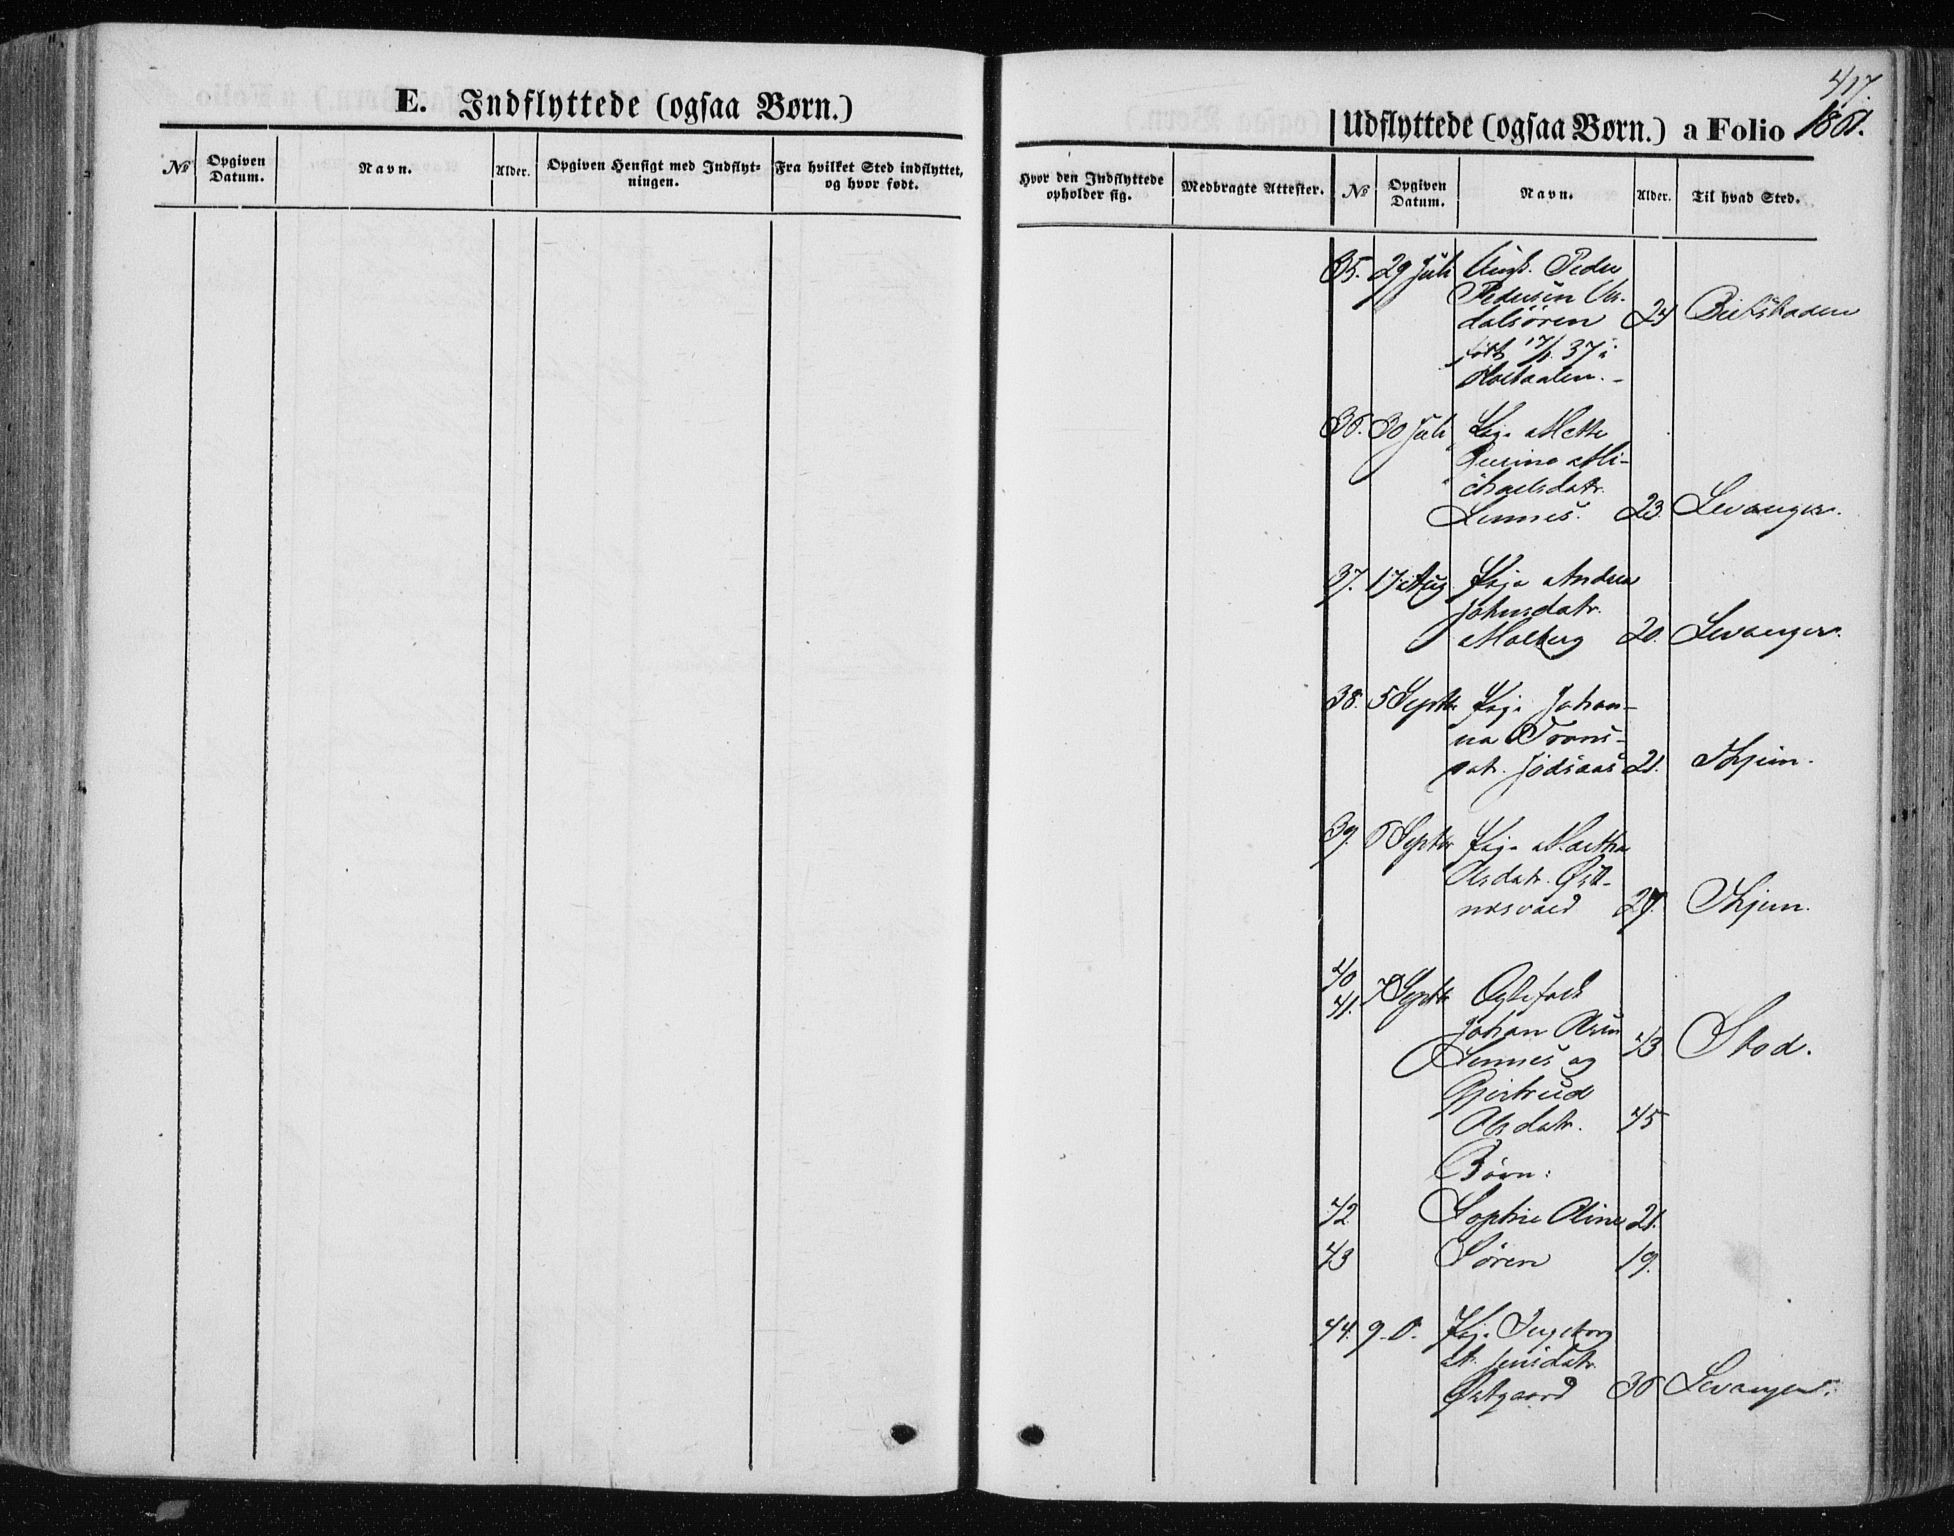 E. Indflyttede (ogsaa Børn.)
No
Opgiven Datum.
Navn.
Alder.
Opgiven Hensigt med Indflyt-
ningen.
Fra hvilket Sted indflyttet,
og hvor født.
417.
Udflyttede (ogsaa Børn.) a Folio 1861.
Hvor den Indflyttede
opholder sig.
Medbragte Attester.
No
Opgiven Datum.
Navn.
Alder.
Til hvad Sted.
35. 29 Juli Ungk. Peder
Pedersen Ver-
dalsøren 24
født 17/1 37 i
Holtaalen.
36. 30 Juli Pige Mette
Mi-
chaelsdatr.
Lennes. 23. Levanger.
37. 17 Aug. Pige Andrea
Johnsdatr.
Molberg 20. Levanger.
38. 5 Septbr Pige Johan-
na Trons-
datr. Jødsaas 21. Thjem.
39. 6 Septbr Pige Martha
Olsdatr.
27. Thjem.
40
41. 7 Septbr Egtefolk
Johan Olsen
Lennes og 43 Stod.
Gjertrud
Olsdatr. 45
Børn:
42 Sophie Oline 21.
43 Søren 19.
44. 9. D. Pige Ingeborg
At. Jensdatr.
Østgaard 36 Levanger.